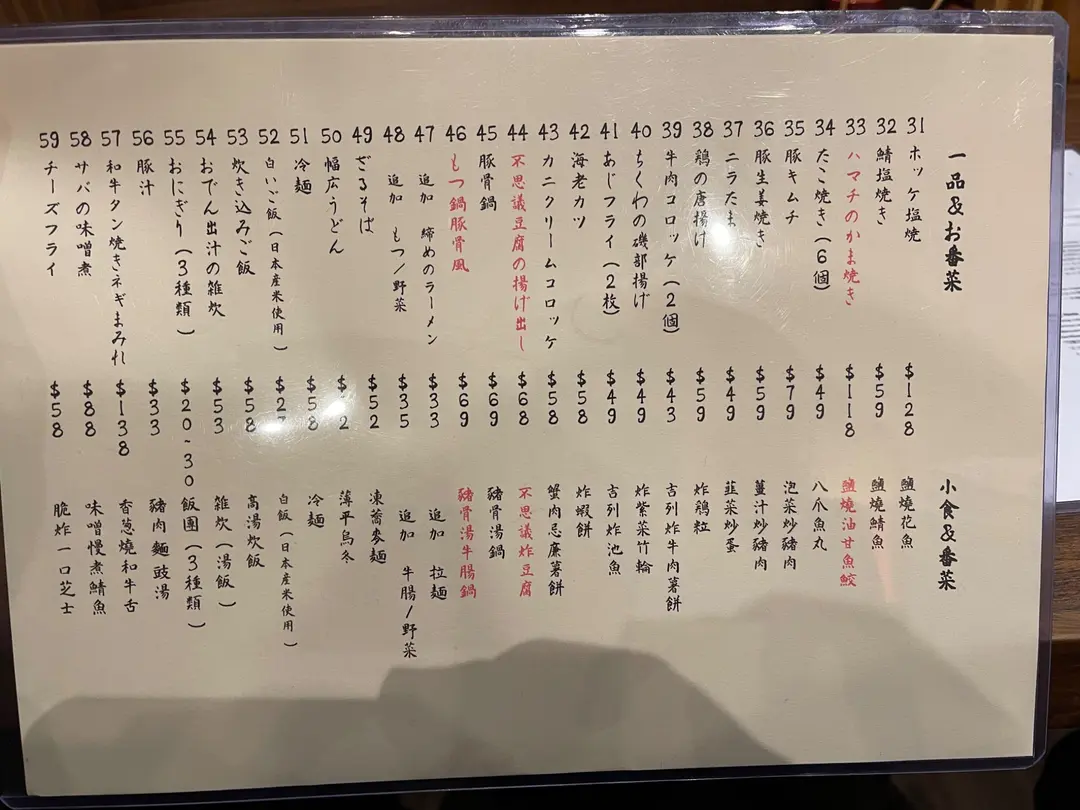 一品&お番菜 小食&番菜
31 ホッケ塩焼 $128 鹽燒花魚
32 鯖塩焼き $59 鹽燒鯖魚
33 ハマチのかま焼き $118 鹽燒油甘魚鮫
34 たこ焼き(6個) $49 八爪魚丸
35 豚キムチ $79 泡菜炒豬肉
36 豚生姜焼き $59 薑汁炒豬肉
37 ニラたま $49 韮菜炒蛋
38 鶏の唐揚げ $59 炸鶏粒
39 牛肉コロッケ(2個) $43 吉列炸牛肉薯餅
40 ちくわの磯部揚げ $49 炸紫菜竹輪
41 あじフライ(2枚) $49 吉列炸池魚
42 海老カツ $58 炸蝦餅
43 カニクリームコロッケ $58 蟹肉忌廉薯餅
44 不思議豆腐の揚げ出し $68 不思議炸豆腐
45 豚骨鍋 $69 豬骨湯鍋
46 もつ鍋豚骨風 $69 豬骨湯牛腸鍋
47 追加 締めのラーメン $33 追加 拉麵
48 追加 もつ/野菜 $35 追加 牛腸/野菜
49 ざるそば $52 凍蕎麥麵
50 幅広うどん 薄平烏冬
51 冷麺 $58 冷麵
52 白いご飯(日本産米使用) 白飯(日本産米使用)
53 炊き込みご飯 $58 高湯炊飯
54 おでん出汁の雑炊 $53 雑炊(湯飯)
55 おにぎり(3種類) $20~30 飯團(3種類)
56 豚汁 $33 豬肉麵豉湯
57 和牛タン焼きネギまみれ $138 香蔥燒和牛舌
58 サバの味噌煮 $88 味噌慢煮鯖魚
59 チーズフライ $58 脆炸一口芝士